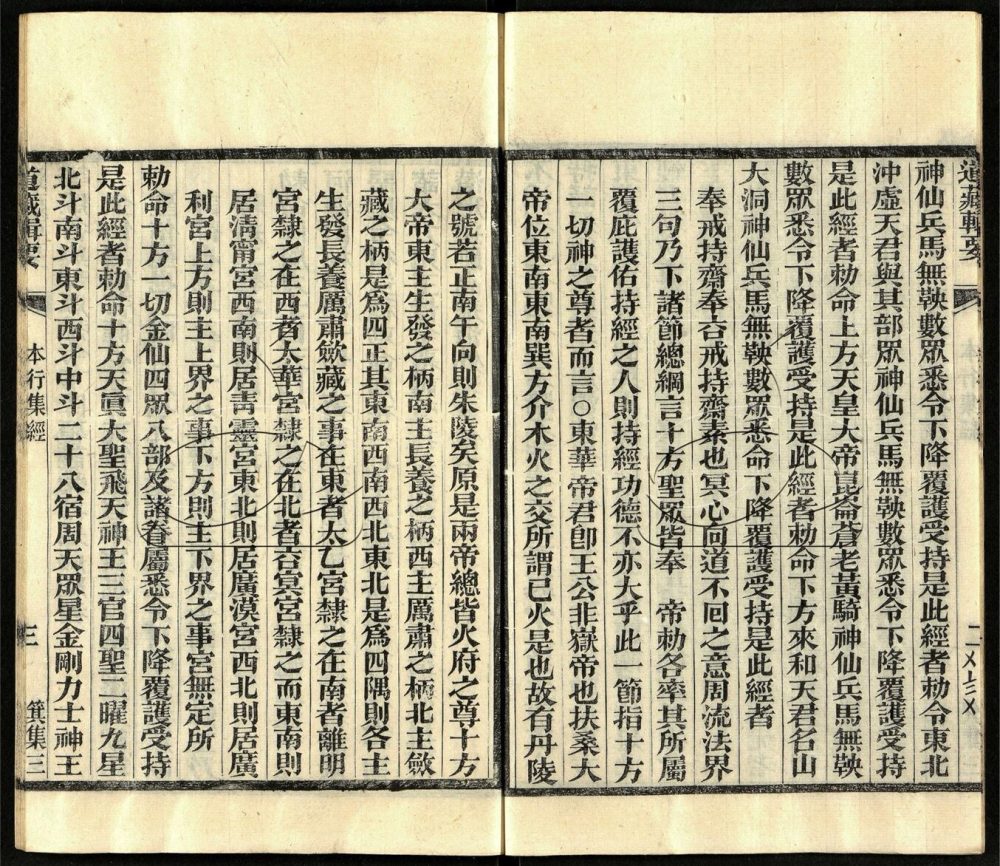 道藏輯要
神仙兵馬無鞅數眾悉令下降覆護受持是此經者勅令東北
沖虛天君與其部眾神仙兵馬無鞅數眾悉令下降覆護受持
是此經者勅命上方天皇大帝崑崙蒼老黃騎神仙兵馬無鞅
數眾悉令下降覆護受持是此經者勅命下方來和天君名山
大洞神仙兵馬無鞅數眾悉命下降覆護受持是此經者
奉戒持齋奉㕣戒持齋素也冥心回道不回之意周流法界
三句乃下諸節總綱言十方聖眾皆奉　帝勅各率其所屬
覆庇護佑持經之人則持經功德不亦大乎此一節指十方
一切神之尊者而言○東華帝君卽王公非嶽帝也扶桑大
帝位東南東南巽方介木火之交所謂巳火是也故有丹陵
之號若正南午向則朱陵矣原是兩帝總皆火府之尊十方
大帝東主生發之柄南主長養之柄西主厲肅之柄北主斂
藏之柄是爲四正其東南西南西北東北是爲四隅則各主
生發長養厲肅歛藏之事在東者太乙宮隸之在南者離明
宮隸之在西者太華宮隸之在北者㕣冥宮隸之而東南則
居淸甯宮西南則居靑靈宮東北則居廣漠宮西北則居廣
利宮上方則主上界之事下方則主下界之事宮無定所
勅命十方一切金仙四眾八部及諸眷屬悉令下降覆護受持
是此經者勅命十方天眞大聖飛天神王三官四聖二曜九星
北斗南斗東斗西斗中斗二十八宿周天眾星金剛力士神王
道藏輯要
本行集經
三
箕集三